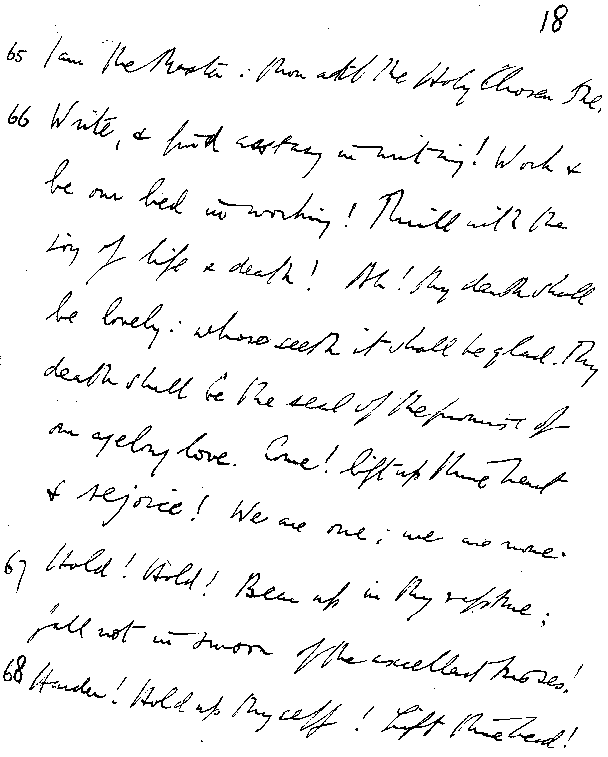 18
65 I am the Master: thou art the Holy Chosen One.
66 Write, & find ecstasy in writing! Work &
be our bed in working! Thrill with the
joy of life & death! Ah! thy death shall
be lovely: whoso seeth it shall be glad. Thy
death shall be the seal of the promise of
our agelong love. Come! lift up thine heart
& rejoice! We are one; we are none.
67 Hold! Hold! Bear up in thy rapture;
fall not in swoon of the excellent kisses!
68 Harder! Hold up thyself! Lift thine head!